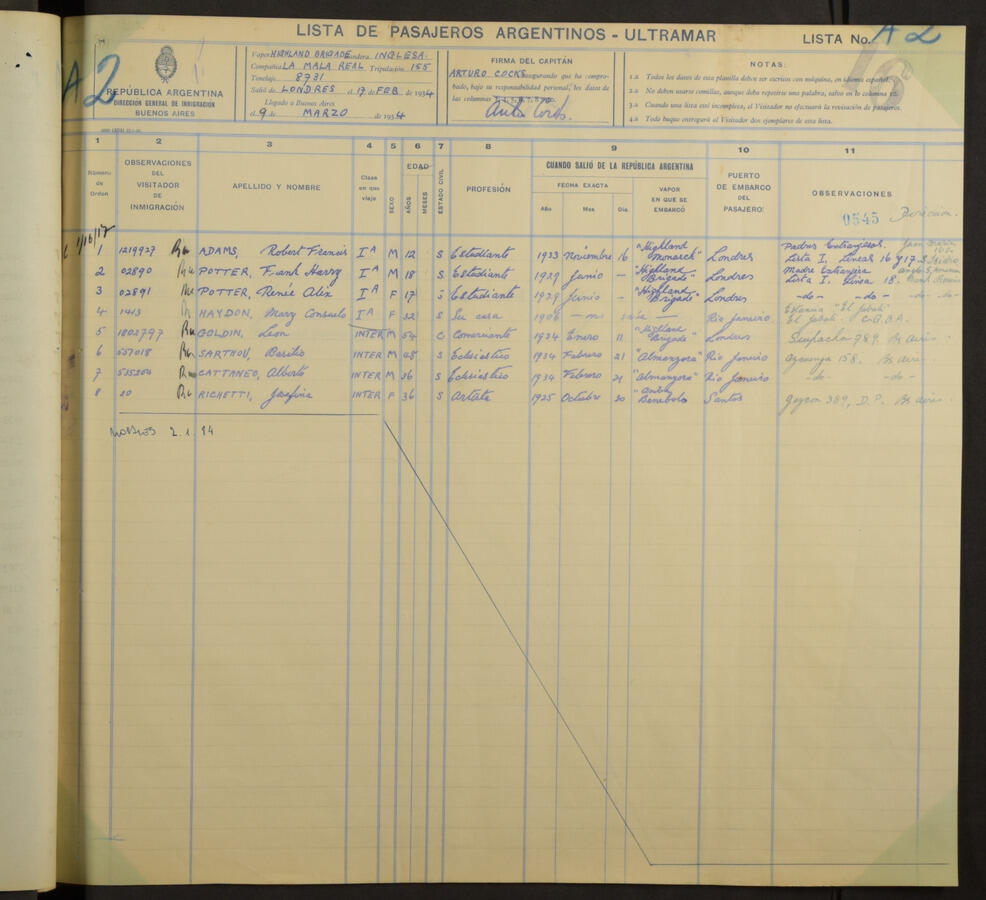 LISTA DE PASAJEROS ARGENTINOS - ULTRAMAR
LISTA No. A2
A2
REPÚBLICA ARGENTINA
DIRECCIÓN GENERAL DE INMIGRACIÓN
BUENOS AIRES
Vapor HIGHLAND BRIGADE Bandera INGLESA.
Compañía LA MALA REAL Tripulación 155
Tonelaje 8731
Salió de LONDRES el 17 de FEB. de 1934
Llegado a Buenos Aires
el 9 de MARZO de 1934
FIRMA DEL CAPITÁN
ARTURO COCKS asegurando que ha compro-
bado, bajo su responsabilidad personal, los datos de
las columnas
NOTAS:
1.a Todos los datos de esta planilla deben ser escritos con máquina, en idioma español.
2.a No deben usarse comillas, aunque deba repetirse una palabra, salvo en la columna 12.
3.a Cuando una lista esté incompleta, el Visitador no efectuará la revisación de pasajeros.
4.a Todo buque entregará al Visitador dos ejemplares de esta lista.
1 2 3 4 5 6 7 8 9 10 11
Número de Orden
OBSERVACIONES DEL VISITADOR DE INMIGRACIÓN
APELLIDO Y NOMBRE
Clase en que viaje
SEXO
EDAD
AÑOS
MESES
ESTADO CIVIL
PROFESIÓN
CUANDO SALIÓ DE LA REPÚBLICA ARGENTINA
FECHA EXACTA
Año Mes Día
VAPOR EN QUE SE EMBARCÓ
PUERTO DE EMBARCO DEL PASAJERO:
OBSERVACIONES
0545 Dirección.
1 1219927 ADAMS, Robert Francis I A M 12 S Estudiante 1933 Noviembre 16 "Highland Monarch" Londres Padres Extranjeros. Lista I. Lineas 16 y 17.
2 02890 POTTER, Frank Harry I A M 18 S Estudiante 1929 Junio — "Highland Brigade" Londres Madre Extranjera Lista I. Linea 18.
3 02891 POTTER, Renée Alix I A F 17 S Estudiante 1929 Junio - "Highland Brigade" Londres -do- -do-
4 1413 HAYDON, Mary Consuelo I A F 32 S Su casa 1906 — Rio Janeiro
5 1802797 GOLDIN, Leon INTER M 54 C Comerciante 1934 Enero 11 "Highland Brigade" Londres Suipacha 789. Bs Aires.
6 557018 SARTHOU, Basilio INTER M 48 S Eclesiastico 1934 Febrero 21 "Almanzora" Rio Janeiro 158. Bs Aires.
7 535204 CATTANEO, Alberto INTER M 36 S Eclesiastico 1934 Febrero 21 "Almanzora" Rio Janeiro -do- -do-
8 20 RICHETTI, Josefina INTER F 36 S Artista 1925 Octubre 20 Santos 389, D.P. Bs Aires.